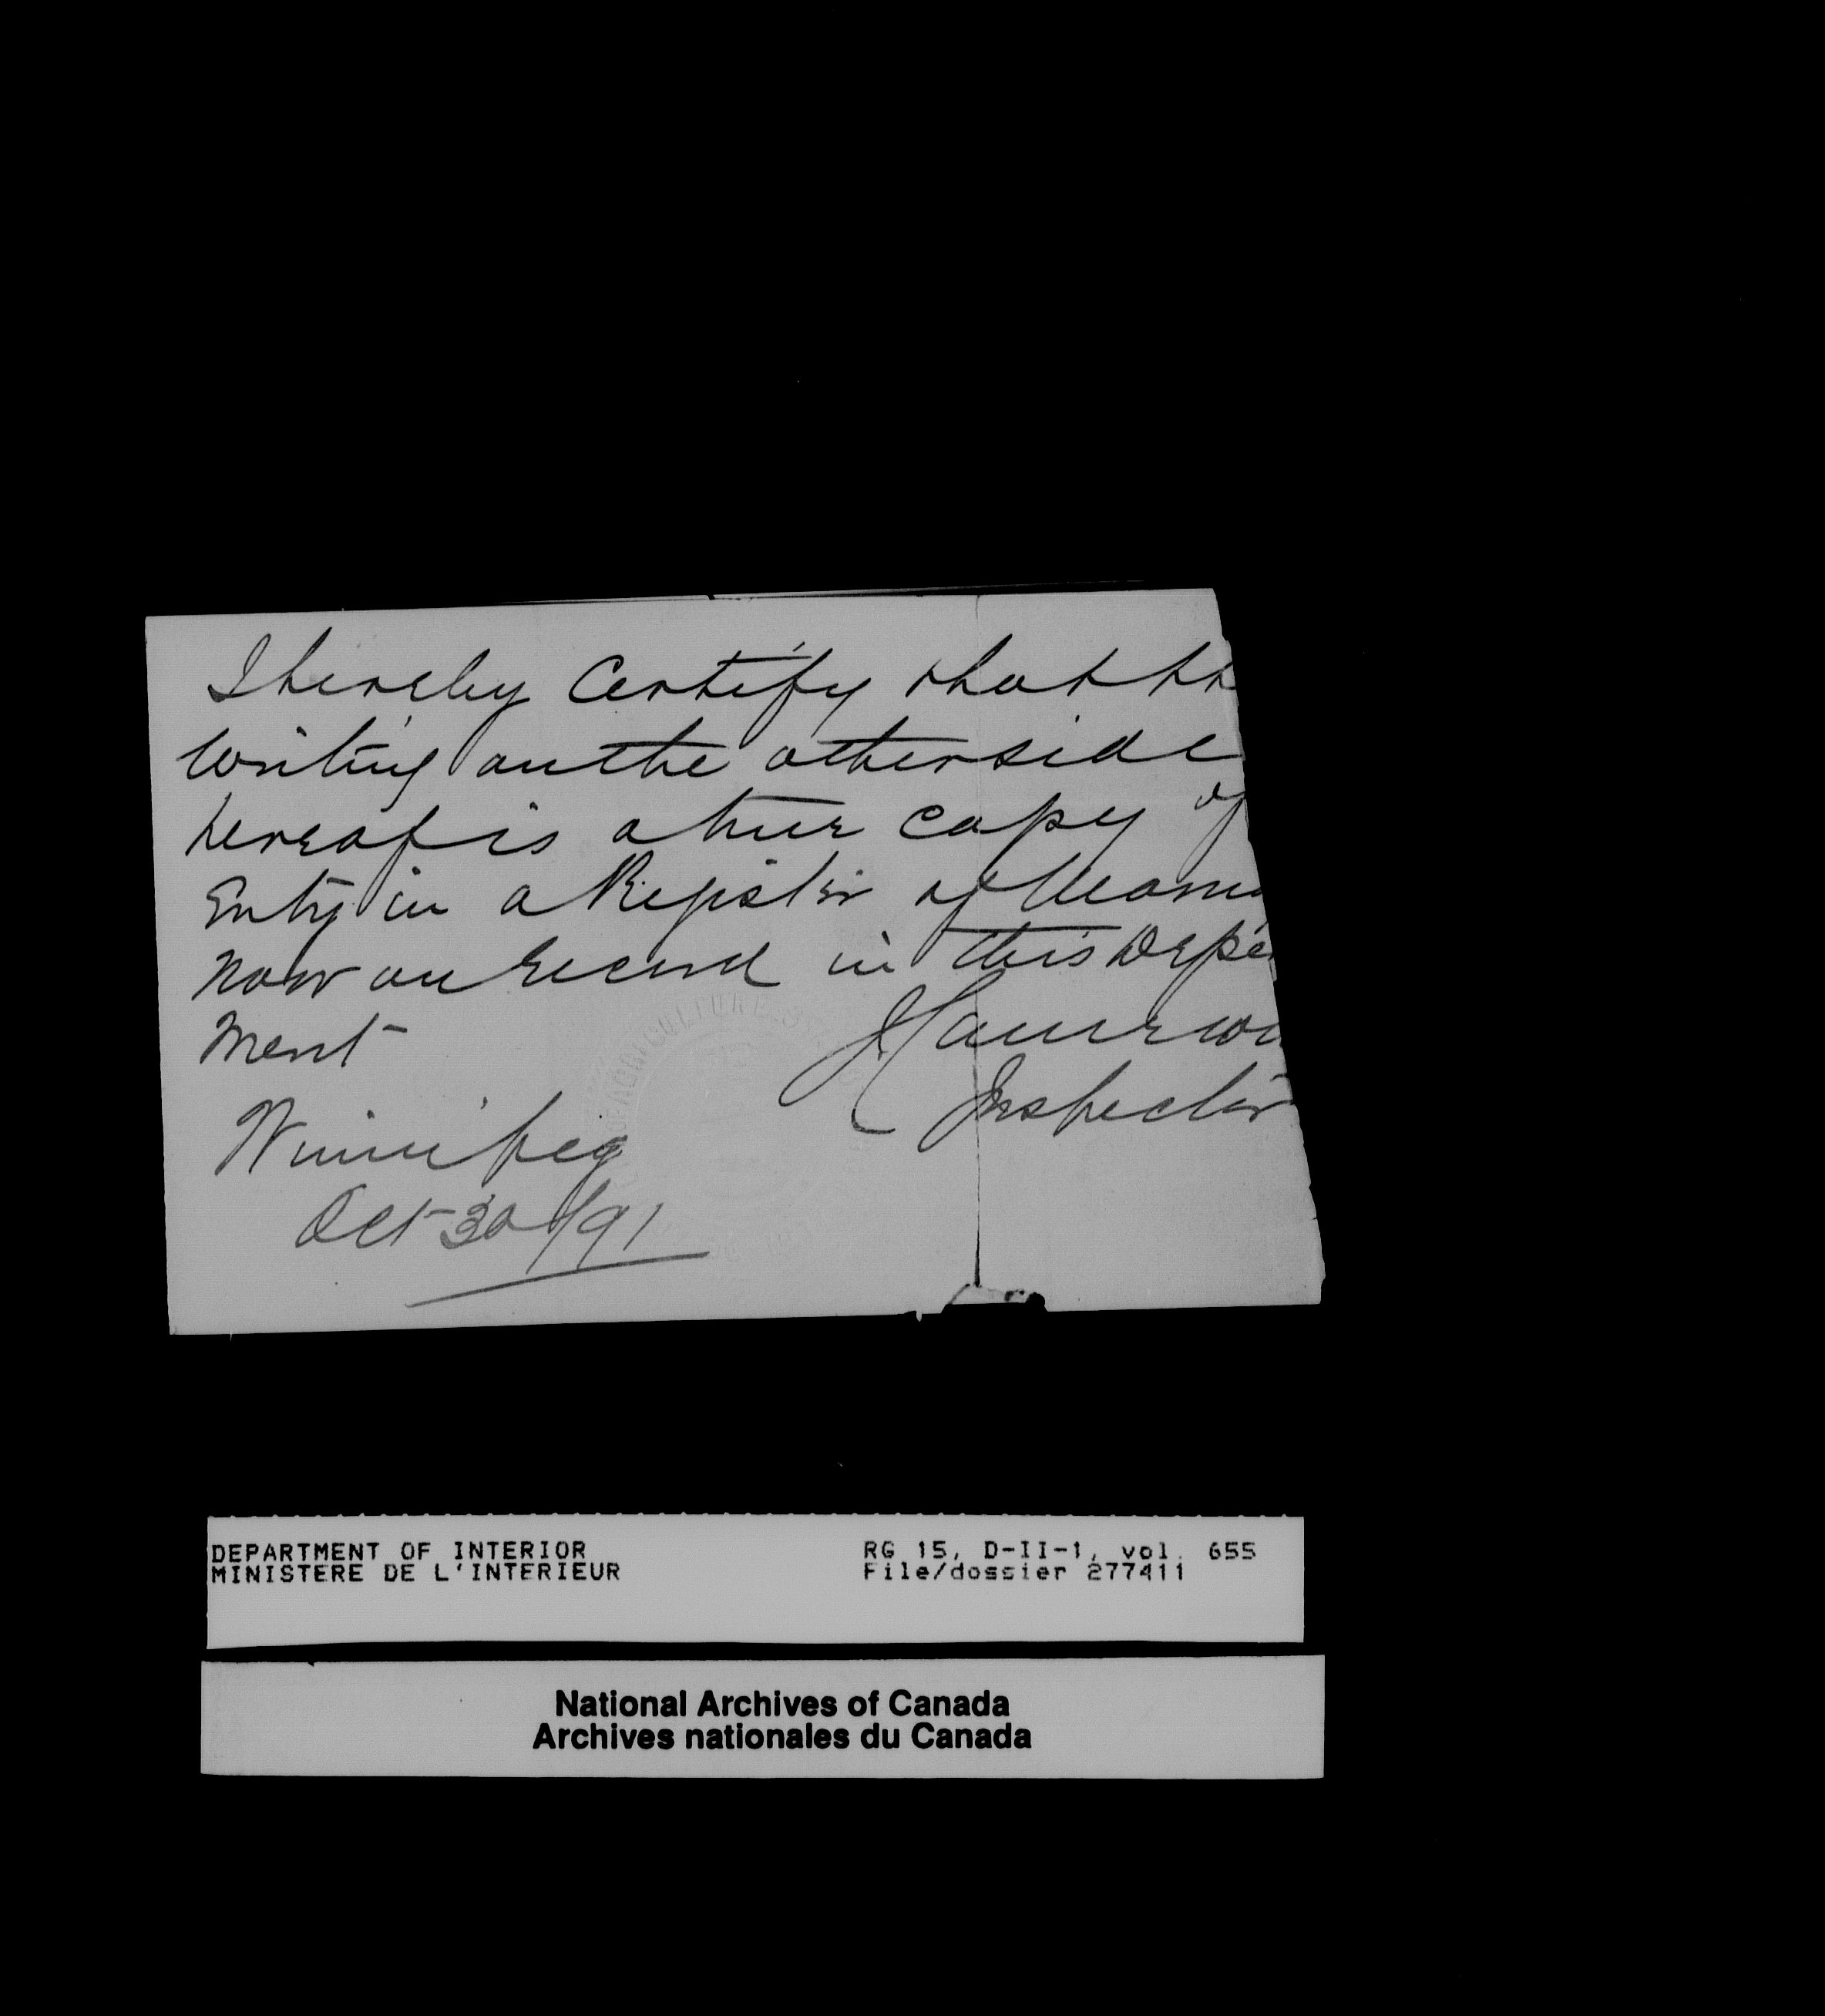 I hereby Certify that th
writing on the other side
hereof is a true copy of
Entry in a Register of
now on record in this Depa
ment
Inspector
Winnipeg
Oct 30/91
DEPARTMENT OF INTERIOR
MINISTERE DE L'INTERIEUR
RG 15, D-II-1, vol. 655
File/dossier 277411
National Archives of Canada
Archives nationales du Canada